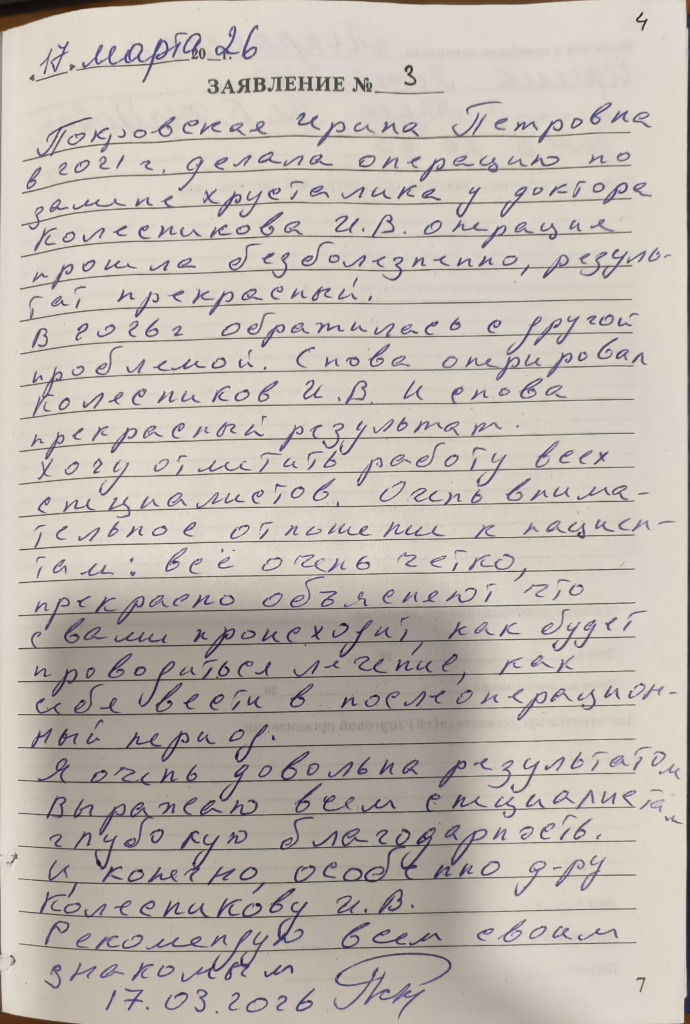 4
17. марта 20 26
ЗАЯВЛЕНИЕ № 3
Покровская Ирина Петровна
в 2021 г. делала операцию по
замене хрусталика у доктора
Колесникова И.В. операция
прошла безболезненно, резуль-
тат прекрасный.
В 2026 г обратилась с другой
проблемой. Снова оперировал
Колесников И.В. И снова
прекрасный результат.
Хочу отметить работу всех
специалистов. Очень внима-
тельное отношение к пациен-
там: всё очень четко,
прекрасно объясняют что
с вами происходит, как будет
проводиться лечение, как
себя вести в послеоперацион-
ный период.
Я очень довольна результатом
Выражаю всем специалистам
глубокую благодарность.
И, конечно, особенно д-ру
Колесникову И.В.
Рекомендую всем своим
знакомым
17.03.2026
7